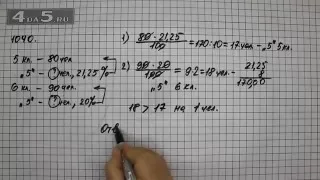 4па5.ru
1040.
5 кл. – 80 чел
„5“ – ? чел, 21,25 %
6 кл. – 90 чел.
„5“ – ? чел, 20%
1) 80 · 21,25 / 100 = 170 : 10 = 17 чел – „5“ 5 кл.
2) 90 · 20 / 100 = 9 · 2 = 18 чел –
21,25
8
170,00
18 > 17 на 1 чел.
Отв